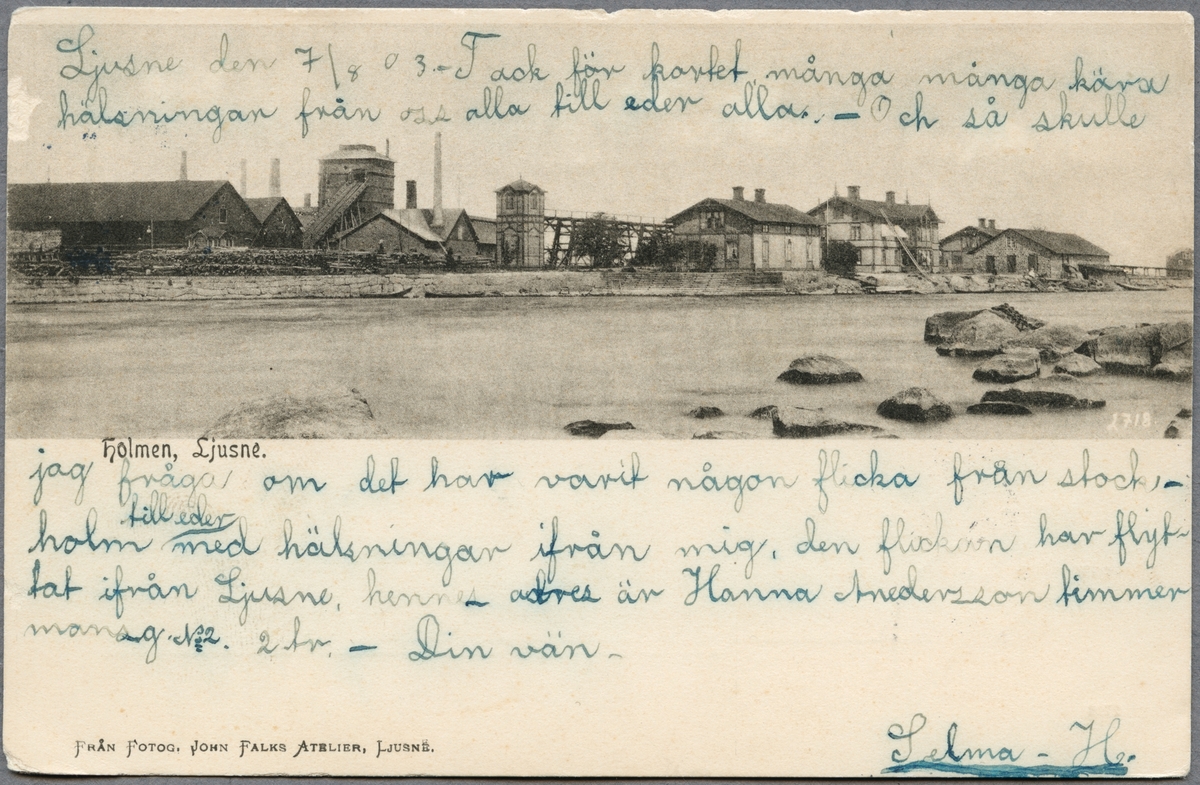 Ljusne den 7/8 03.- Tack för kortet, många många kära
hälsningar från oss alla till eder alla. - Och så skulle
2718
Holmen, Ljusne.
jag fråga om det har varit någon flicka från stock-
till eder
holm med hälsningar ifrån mig, den flickan har flyt-
tat ifrån Ljusne, hennes adres är Hanna Anedersson timmer
mansg. No 2. 2 tr. - Din vän -
Selma - H.
Från Fotog. John Falks Atelier, Ljusne.